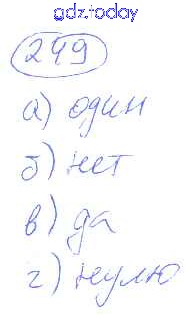 gdz.today
249
а) один
б) нет
в) да
г) нулю